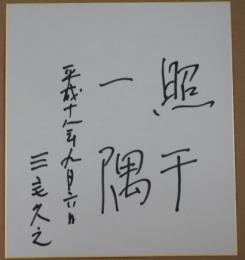 照千
一隅
平成十八年九月六日
三宅久之